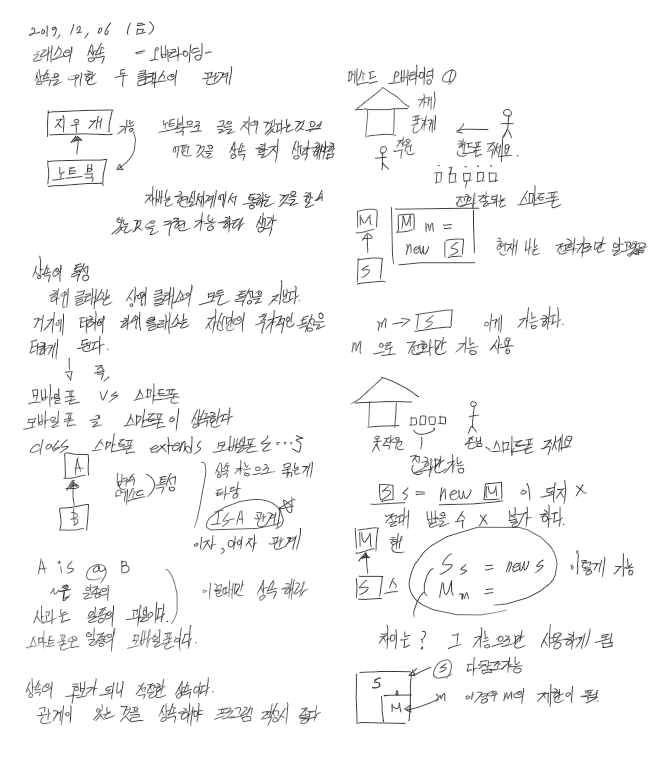 2019, 12, 06 (금)
클래스의 상속 - 오버라이딩-
상속을 위한 두 클래스의 관계
지우개
가능
노트북
노트북으로 글을 지우
어떤 것을 상속 할지 생각해야함
자바는 현실세계에서 통하는 것을
구현 가능하다 생각
상속의 특성
하위 클래스는 상위 클래스의 모든 특성을 지닌다.
거기에 더하여 하위 클래스는 자신만의 추가적인 특성을
더하게 된다.
즉,
모바일폰 VS 스마트폰
모바일폰 을 스마트폰이 상속한다
class 스마트폰 extends 모바일폰 { ... }
A
B
변수
메소드
특성
상속 기능으로 묶는게
타당
IS-A 관계
이자, 이자 관계
A is @ B
일종의
사과는 일종의 과일이다.
스마트폰은 일종의 모바일폰이다.
이럴때만 상속 해라
상속의 후보가 되니 적절한 상속이다.
관계이 있는 것을 상속해야 프로그램 작성시 좋다
메소드 오버라이딩 ①
가게
폰가게
직원
핸드폰 주세요.
전화 잘되는 스마트폰
M
S
M m =
new S
현재 나는 전화기로만 알고있음
m → S 이게 가능하다.
M 으로 전화만 가능 사용
옷직원
전화만 가능
손님
스마트폰 주세요
S s = new M 이 되지 X
절대 받을 수 X 불가 하다.
M 핸
S 스
S s = new S
M m =
이렇게 가능
차이는? 그 기능으로만 사용하게 됨
S
M
S 다 참조가능
m 이경우 M의 제한이 됨.